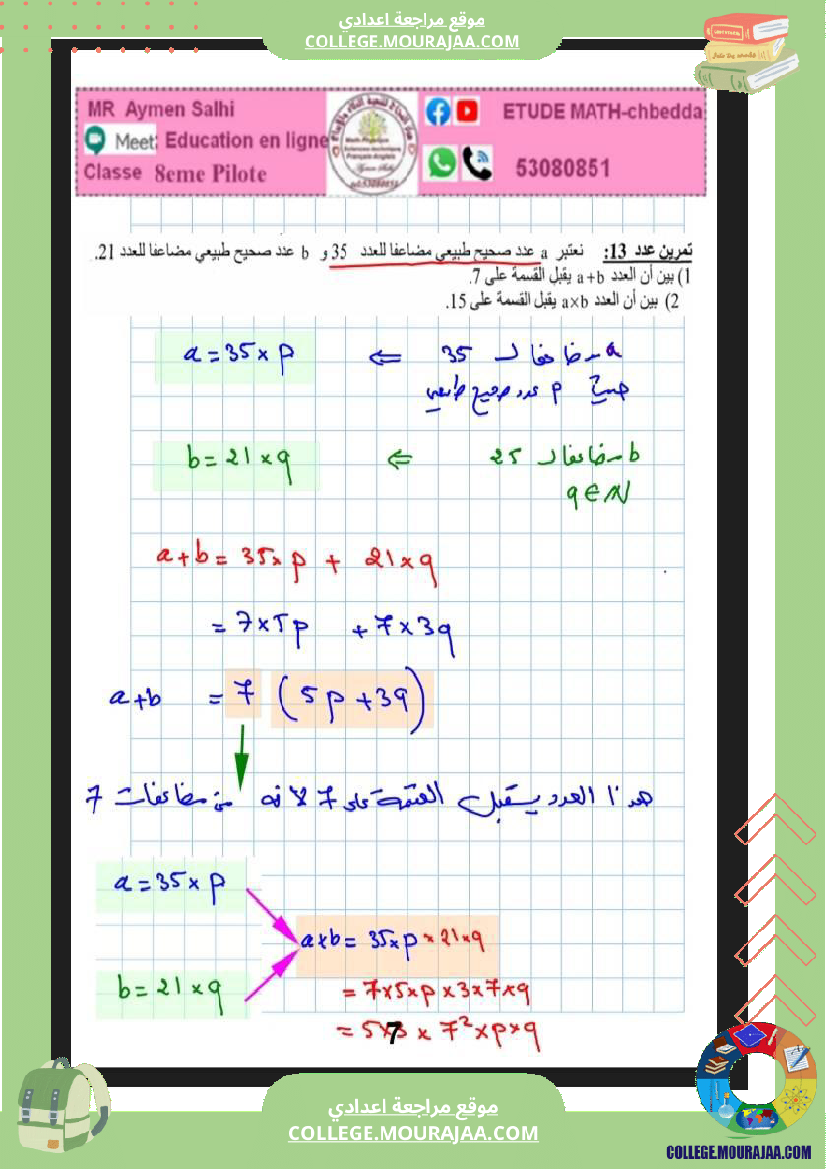 موقع مراجعة اعدادي
COLLEGE.MOURAJAA.COM
MR Aymen Salhi
Meet Education en ligne
Classe 8eme Pilote
ETUDE MATH-chbedda
53080851
تمرين عدد 13: نعتبر a عدد صحيح طبيعي مضاعفا للعدد 35 و b عدد صحيح طبيعي مضاعفا للعدد 21.
1) بين أن العدد a+b يقبل القسمة على 7.
2) بين أن العدد a×b يقبل القسمة على 15.
a مضاعفا لـ 35 ⇐ a = 35 × p
حيث p عدد صحيح طبيعي
b مضاعفا لـ 25 ⇐ b = 21 × q
q ∈ IN
a + b = 35 × p + 21 × q
= 7 × 5p + 7 × 3q
a + b = 7 (5p + 3q)
هذا العدد يقبل القسمة على 7 لأنه من مضاعفات 7
a = 35 × p
a × b = 35 × p × 21 × q
b = 21 × q
= 7 × 5 × p × 3 × 7 × q
= 5 × 3 × 7² × p × q
7
موقع مراجعة اعدادي
COLLEGE.MOURAJAA.COM
COLLEGE.MOURAJAA.COM